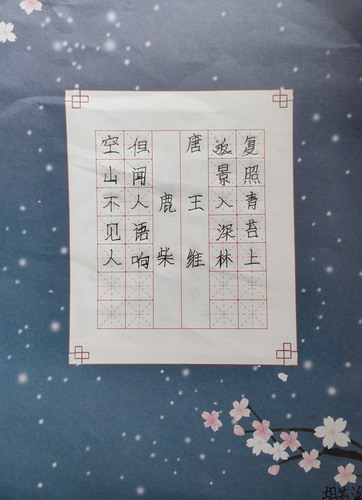 空山不见人
但闻人语响
鹿柴
唐王维
返景入深林
复照青苔上